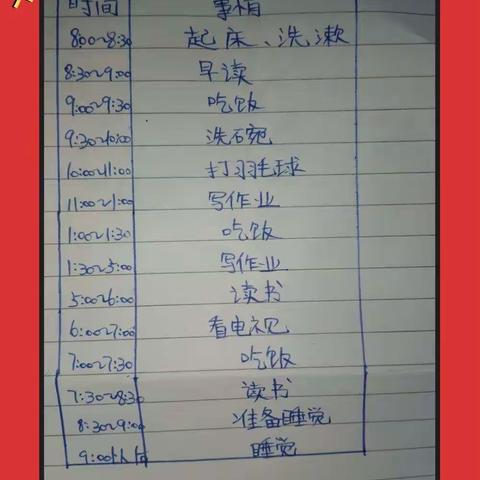 时间 事情
8:00~8:30 起床、洗漱
8:30~9:00 早读
9:00~9:30 吃饭
9:30~10:00 洗碗
10:00~11:00 打羽毛球
11:00~1:00 写作业
1:00~1:30 吃饭
1:30~5:00 写作业
5:00~6:00 读书
6:00~7:00 看电视
7:00~7:30 吃饭
7:30~8:30 读书
8:30~9:00 准备睡觉
9:00 睡觉